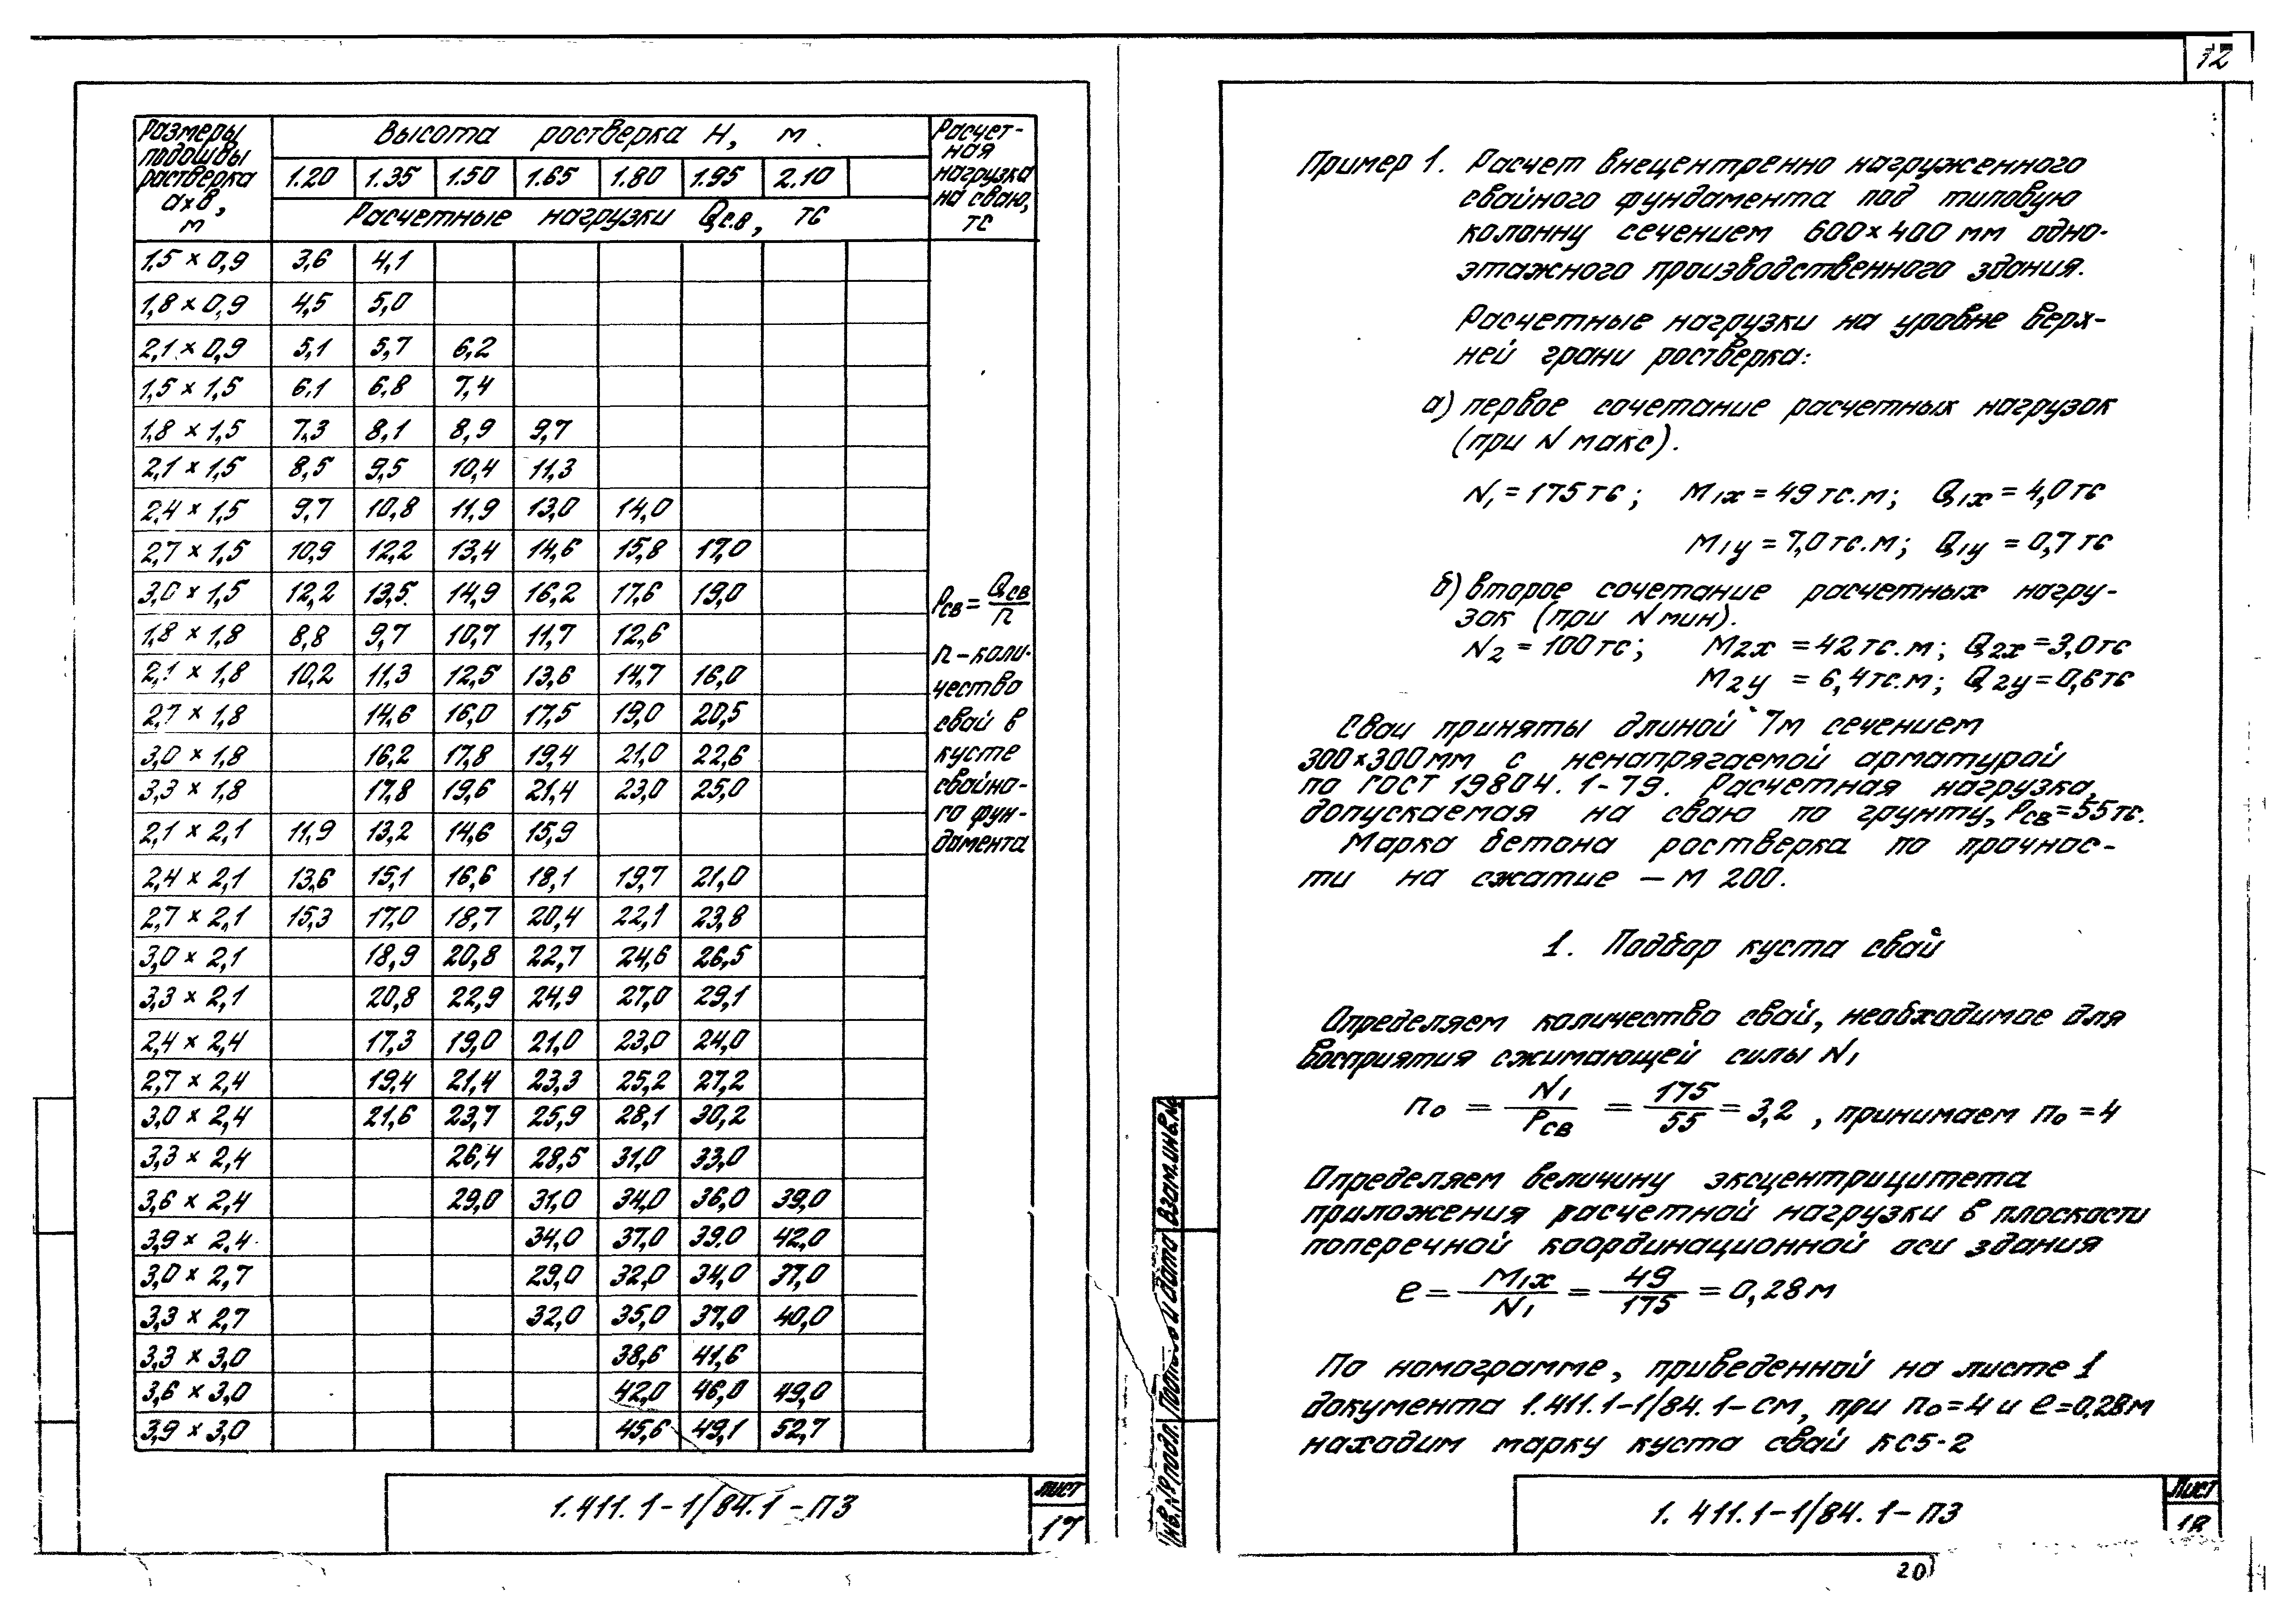 12
Размеры подошвы ростверка a×в, м | Высота ростверка H, м | Расчет-ная нагрузка на сваю, тс
1.20 | 1.35 | 1.50 | 1.65 | 1.80 | 1.95 | 2.10
Расчетные нагрузки Qс.в, тс
1,5 × 0,9 | 3,6 | 4,1
1,8 × 0,9 | 4,5 | 5,0
2,1 × 0,9 | 5,1 | 5,7 | 6,2
1,5 × 1,5 | 6,1 | 6,8 | 7,4
1,8 × 1,5 | 7,3 | 8,1 | 8,9 | 9,7
2,1 × 1,5 | 8,5 | 9,5 | 10,4 | 11,3
2,4 × 1,5 | 9,7 | 10,8 | 11,9 | 13,0 | 14,0
2,7 × 1,5 | 10,9 | 12,2 | 13,4 | 14,6 | 15,8 | 17,0
3,0 × 1,5 | 12,2 | 13,5 | 14,9 | 16,2 | 17,6 | 19,0
1,8 × 1,8 | 8,8 | 9,7 | 10,7 | 11,7 | 12,6
2,1 × 1,8 | 10,2 | 11,3 | 12,5 | 13,6 | 14,7 | 16,0
2,7 × 1,8 | | 14,6 | 16,0 | 17,5 | 19,0 | 20,5
3,0 × 1,8 | | 16,2 | 17,8 | 19,4 | 21,0 | 22,6
3,3 × 1,8 | | 17,8 | 19,6 | 21,4 | 23,0 | 25,0
2,1 × 2,1 | 11,9 | 13,2 | 14,6 | 15,9
2,4 × 2,1 | 13,6 | 15,1 | 16,6 | 18,1 | 19,7 | 21,0
2,7 × 2,1 | 15,3 | 17,0 | 18,7 | 20,4 | 22,1 | 23,8
3,0 × 2,1 | | 18,9 | 20,8 | 22,7 | 24,6 | 26,5
3,3 × 2,1 | | 20,8 | 22,9 | 24,9 | 27,0 | 29,1
2,4 × 2,4 | | 17,3 | 19,0 | 21,0 | 23,0 | 24,0
2,7 × 2,4 | | 19,4 | 21,4 | 23,3 | 25,2 | 27,2
3,0 × 2,4 | | 21,6 | 23,7 | 25,9 | 28,1 | 30,2
3,3 × 2,4 | | | 26,4 | 28,5 | 31,0 | 33,0
3,6 × 2,4 | | | 29,0 | 31,0 | 34,0 | 36,0 | 39,0
3,9 × 2,4 | | | | 34,0 | 37,0 | 39,0 | 42,0
3,0 × 2,7 | | | | 29,0 | 32,0 | 34,0 | 37,0
3,3 × 2,7 | | | | 32,0 | 35,0 | 37,0 | 40,0
3,3 × 3,0 | | | | | 38,6 | 41,6
3,6 × 3,0 | | | | | 42,0 | 46,0 | 49,0
3,9 × 3,0 | | | | | 45,6 | 49,1 | 52,7
Pсв = Qсв / n
n – коли-
чество
свай в
кусте
свайно-
го фун-
дамента
1.411.1-1/84.1-ПЗ
Лист
17
Пример 1. Расчет внецентренно нагруженного
свайного фундамента под типовую
колонну сечением 600×400 мм одно-
этажного производственного здания.
Расчетные нагрузки на уровне верх-
ней грани ростверка:
а) первое сочетание расчетных нагрузок
(при N макс).
N1 = 175 тс; M1x = 49 тс.м; Q1x = 4,0 тс
M1y = 7,0 тс.м; Q1y = 0,7 тс
б) второе сочетание расчетных нагру-
зок (при N мин).
N2 = 100 тс; M2x = 42 тс.м; Q2x = 3,0 тс
M2y = 6,4 тс.м; Q2y = 0,6 тс
Сваи приняты длиной 7м сечением
300×300 мм с ненапрягаемой арматурой
по ГОСТ 19804.1-79. Расчетная нагрузка,
допускаемая на сваю по грунту, Pсв = 55 тс.
Марка бетона ростверка по прочнос-
ти на сжатие – М 200.
1. Подбор куста свай
Определяем количество свай, необходимое для
восприятия сжимающей силы N1
n0 = N1 / Pсв = 175 / 55 = 3,2, принимаем n0 = 4
Определяем величину эксцентрицитета
приложения расчетной нагрузки в плоскости
поперечной координационной оси здания
e = M1x / N1 = 49 / 175 = 0,28 м
По номограмме, приведенной на листе 1
документа 1.411.1-1/84.1-см, при n0=4 и e=0,28м
находим марку куста свай КС5-2
Инв.№ подл. Подпись и дата Взам.инв.№
1.411.1-1/84.1-ПЗ
Лист
18
20